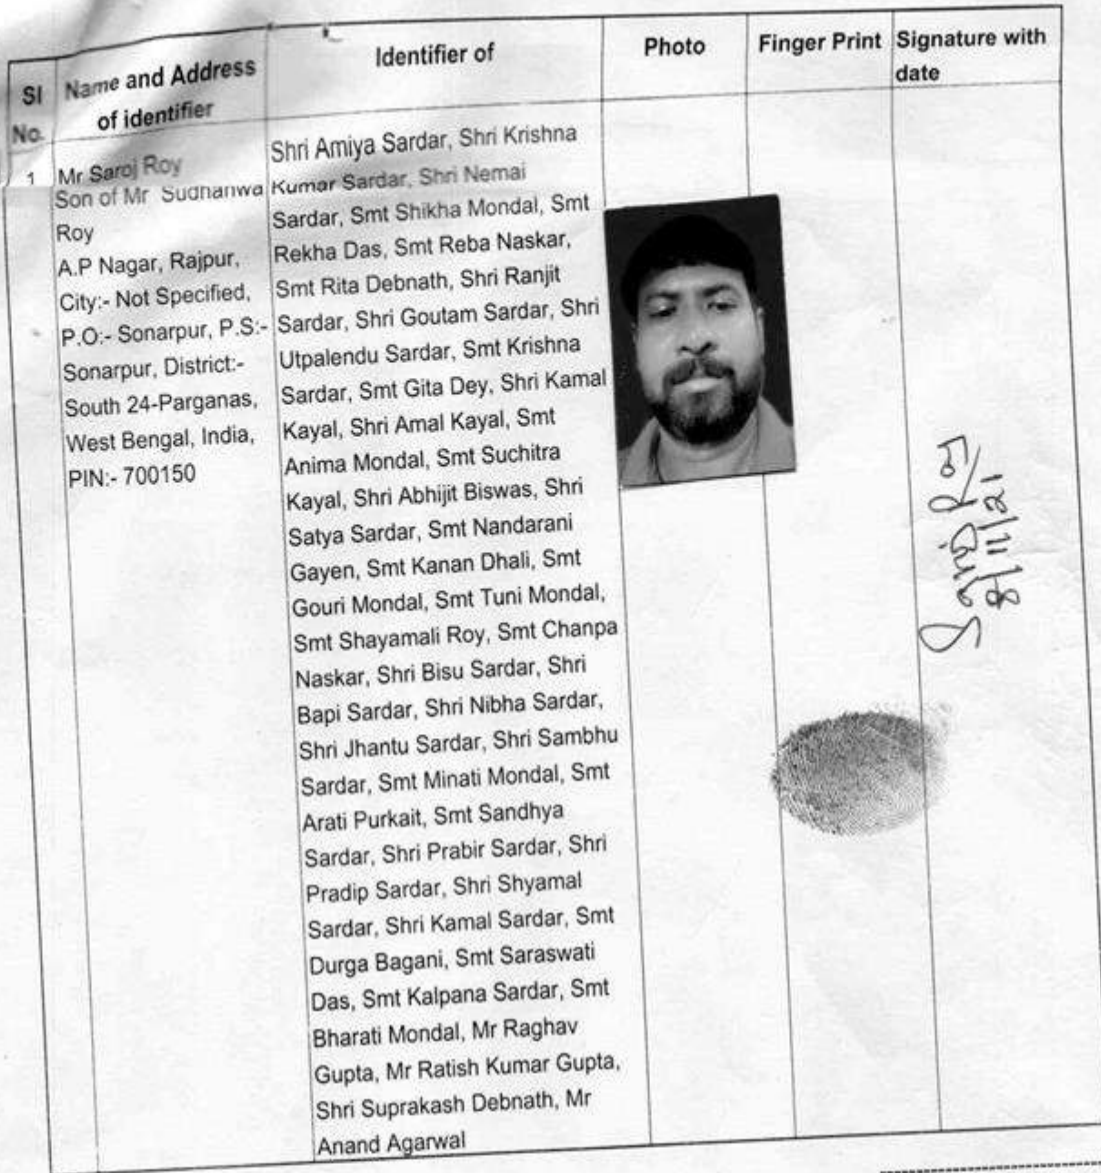 Sl No.
Name and Address of identifier
Identifier of
Photo
Finger Print
Signature with date
1
Mr Saroj Roy
Son of Mr Sudhanwa
Roy
A.P Nagar, Rajpur,
City:- Not Specified,
P.O:- Sonarpur, P.S:-
Sonarpur, District:-
South 24-Parganas,
West Bengal, India,
PIN:- 700150
Shri Amiya Sardar, Shri Krishna
Kumar Sardar, Shri Nemai
Sardar, Smt Shikha Mondal, Smt
Rekha Das, Smt Reba Naskar,
Smt Rita Debnath, Shri Ranjit
Sardar, Shri Goutam Sardar, Shri
Utpalendu Sardar, Smt Krishna
Sardar, Smt Gita Dey, Shri Kamal
Kayal, Shri Amal Kayal, Smt
Anima Mondal, Smt Suchitra
Kayal, Shri Abhijit Biswas, Shri
Satya Sardar, Smt Nandarani
Gayen, Smt Kanan Dhali, Smt
Gouri Mondal, Smt Tuni Mondal,
Smt Shayamali Roy, Smt Chanpa
Naskar, Shri Bisu Sardar, Shri
Bapi Sardar, Shri Nibha Sardar,
Shri Jhantu Sardar, Shri Sambhu
Sardar, Smt Minati Mondal, Smt
Arati Purkait, Smt Sandhya
Sardar, Shri Prabir Sardar, Shri
Pradip Sardar, Shri Shyamal
Sardar, Shri Kamal Sardar, Smt
Durga Bagani, Smt Saraswati
Das, Smt Kalpana Sardar, Smt
Bharati Mondal, Mr Raghav
Gupta, Mr Ratish Kumar Gupta,
Shri Suprakash Debnath, Mr
Anand Agarwal
Saroj Roy
8/11/21